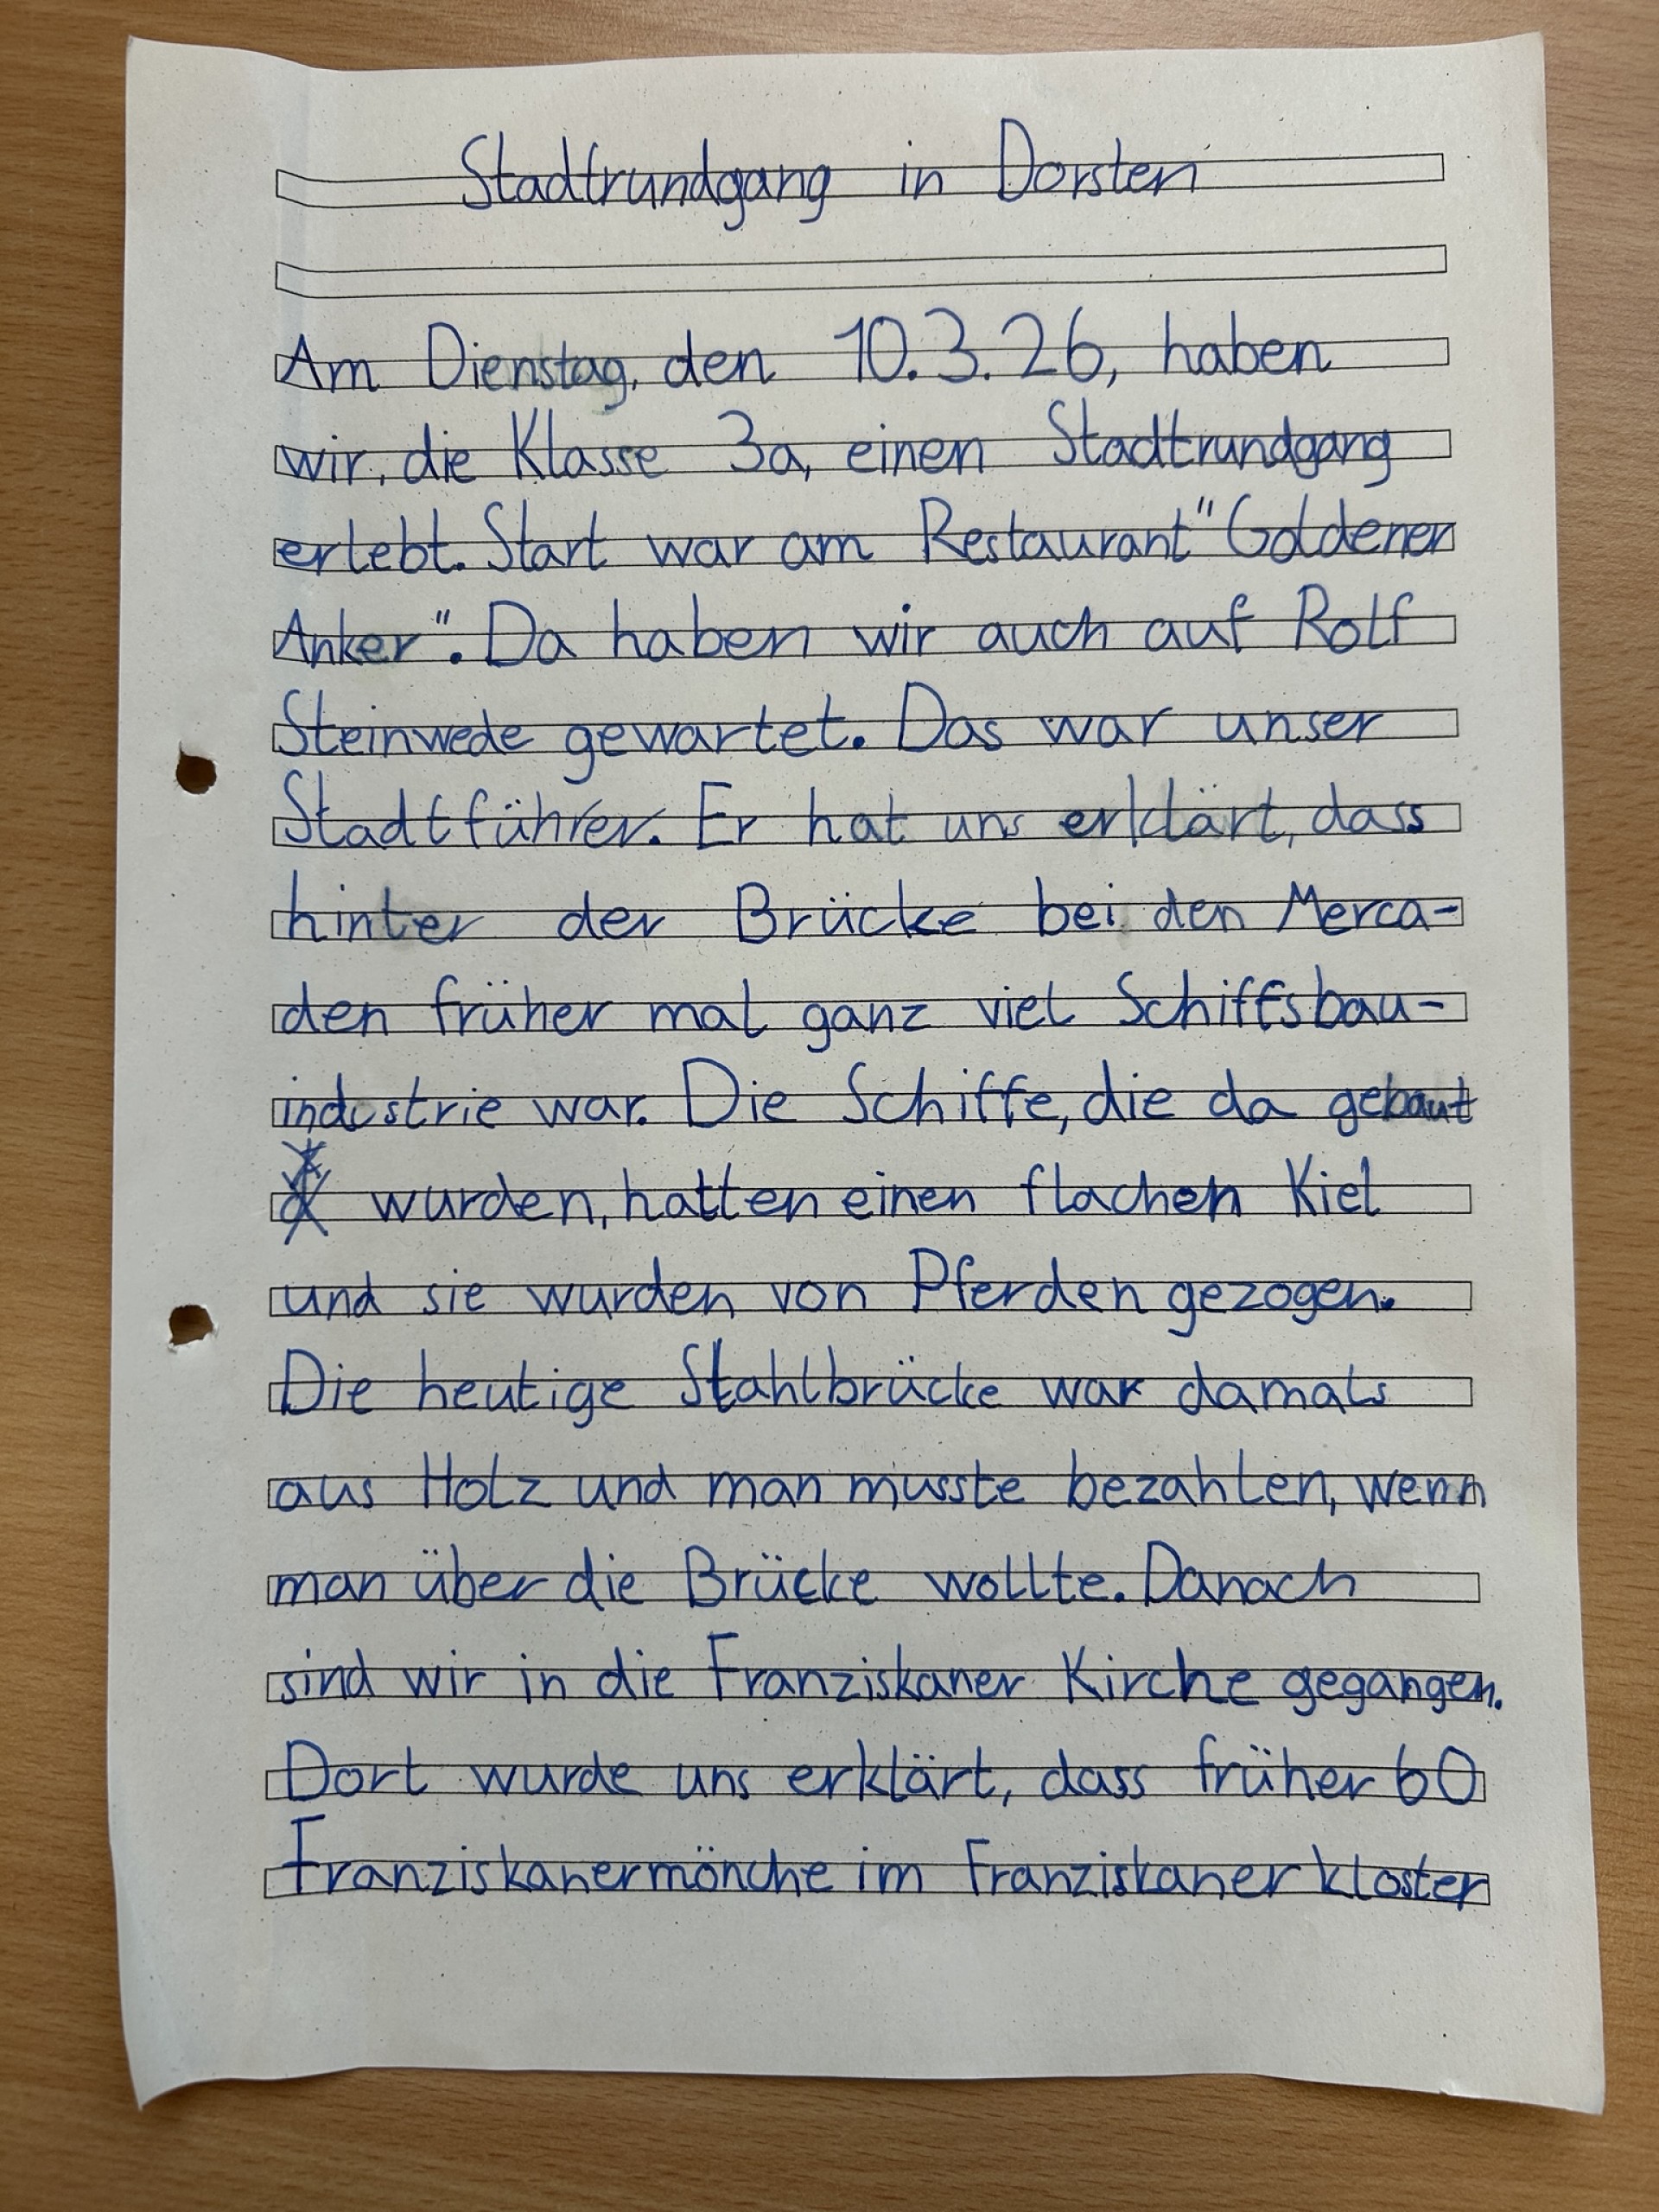 Stadtrundgang in Dorsten
Am Dienstag, den 10.3.26, haben
wir, die Klasse 3a, einen Stadtrundgang
erlebt. Start war am Restaurant "Goldener
Anker". Da haben wir auch auf Rolf
Steinwede gewartet. Das war unser
Stadtführer. Er hat uns erklärt, dass
hinter der Brücke bei den Merca-
den früher mal ganz viel Schiffsbau-
industrie war. Die Schiffe, die da gebaut
wurden, hatten einen flachen Kiel
und sie wurden von Pferden gezogen.
Die heutige Stahlbrücke war damals
aus Holz und man musste bezahlen, wenn
man über die Brücke wollte. Danach
sind wir in die Franziskaner Kirche gegangen.
Dort wurde uns erklärt, dass früher 60
Franziskanermönche im Franziskanerkloster